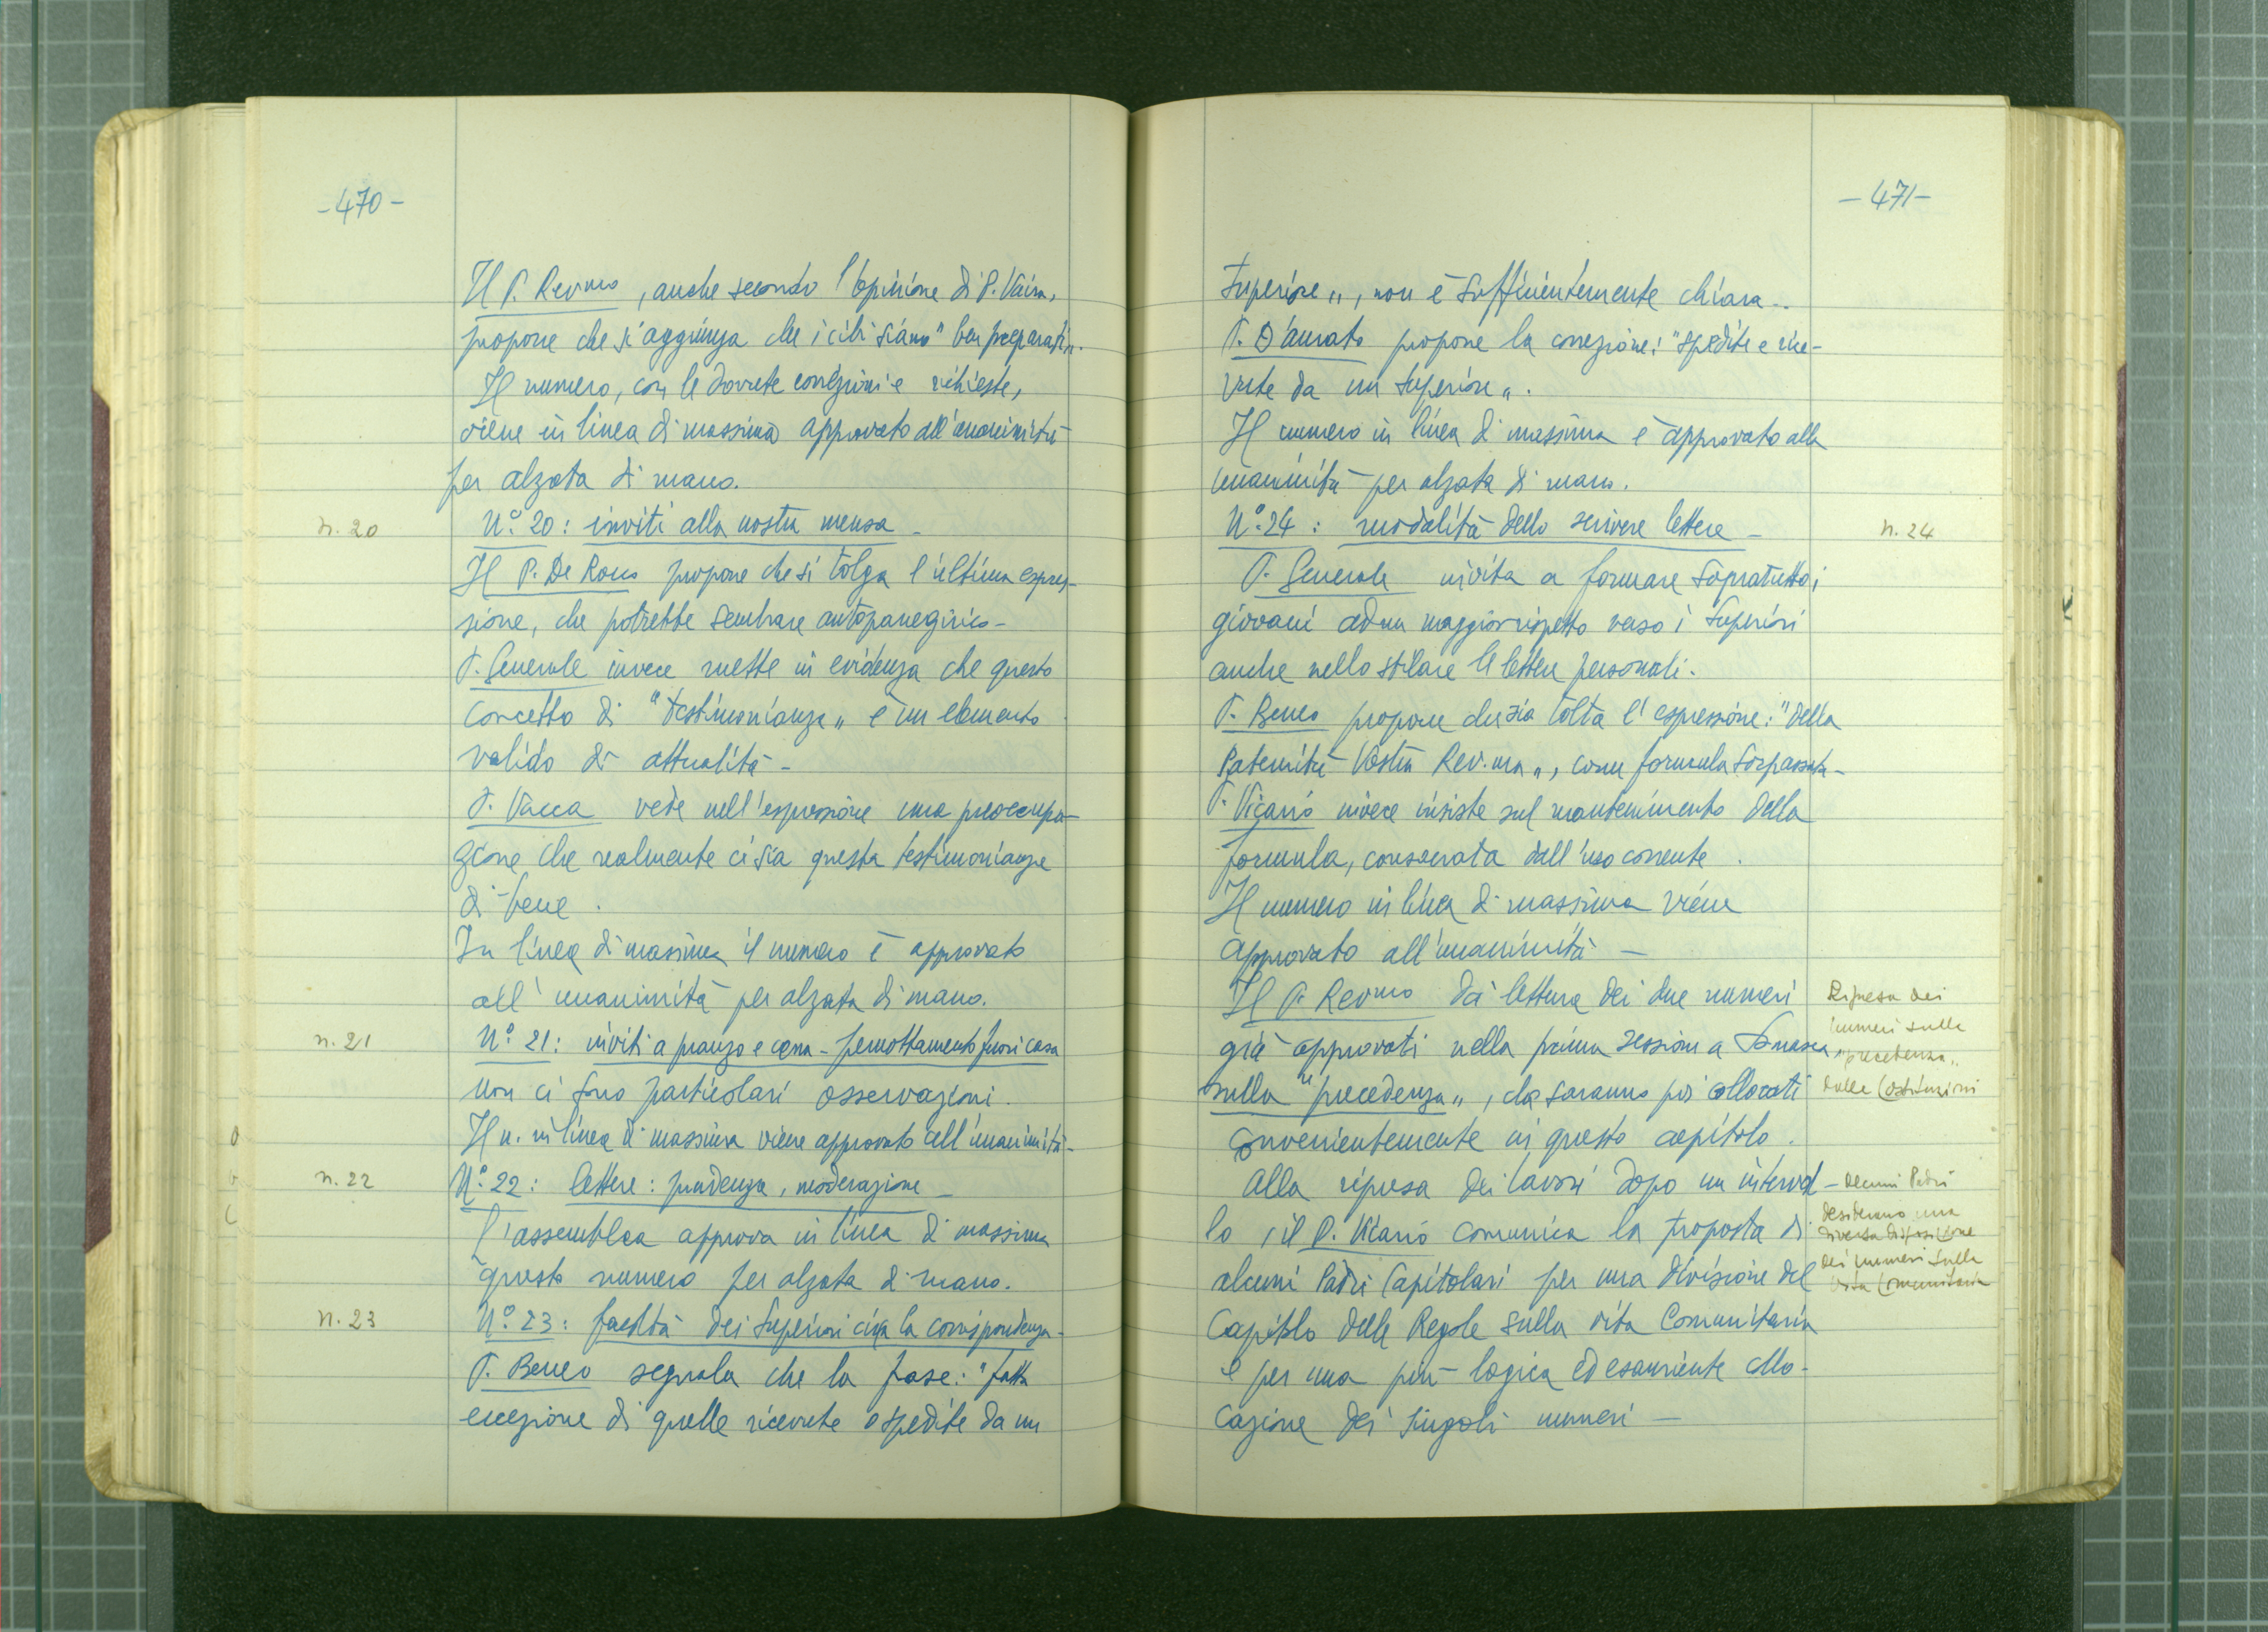 -470-
Il P. Rev.mo, anche secondo l'opinione di P. Vaira,
propone che si aggiunga che i cibi siano "ben preparati".
Il numero, con le dovute correzioni e richieste,
viene in linea di massima approvato all'unanimità
per alzata di mano.
n. 20
N.° 20: inviti alla nostra mensa -
Il P. De Rocco propone che si tolga l'ultima espres-
sione, che potrebbe sembrare autopanegirico -
P. Generale invece mette in evidenza che questo
concetto di "testimonianza" è un elemento
valido di attualità -
P. Vacca vede nell'espressione una preoccupa-
zione che realmente ci sia questa testimonianza
di bene.
In linea di massima il numero è approvato
all'unanimità per alzata di mano.
n. 21
N.° 21: inviti a pranzo e cena - pernottamento fuori casa
Non ci sono particolari osservazioni.
Il n. in linea di massima viene approvato all'unanimità -
n. 22
N.° 22: lettere: prudenza, moderazione -
L'assemblea approva in linea di massima
questo numero per alzata di mano.
n. 23
N.° 23: facoltà dei Superiori circa la corrispondenza -
P. Beneo segnala che la frase: "fatta
eccezione di quelle ricevute o spedite da un
-471-
Superiore", non è sufficientemente chiara -
P. D'Amato propone la correzione: "spedite e rice-
vute da un Superiore".
Il numero in linea di massima è approvato alla
unanimità per alzata di mano.
N.° 24: modalità dello scrivere lettere -
n. 24
P. Generale invita a formare sopratutto i
giovani ad un maggior rispetto verso i Superiori
anche nello stilare le lettere personali.
P. Beneo propone che sia tolta l'espressione: "della
Paternità Vostra Rev.ma", come formula sorpassata -
P. Vicario invece insiste sul mantenimento della
formula, consacrata dall'uso corrente.
Il numero in linea di massima viene
approvato all'unanimità -
Il P. Rev.mo dà lettura dei due numeri
già approvati nella prima sessione a Somasca
sulla "precedenza", che saranno poi collocati
convenientemente in questo capitolo.
Ripresa dei
numeri sulla
"precedenza"
dalle Costituzioni
Alla ripresa dei lavori dopo un interval-
lo, il P. Vicario comunica la proposta di
alcuni Padri Capitolari per una divisione del
Capitolo delle Regole sulla vita Comunitaria
e per una più logica ed esauriente collo-
cazione dei singoli numeri -
Alcuni Padri
desiderano una
diversa disposizione
dei numeri sulla
Vita Comunitaria